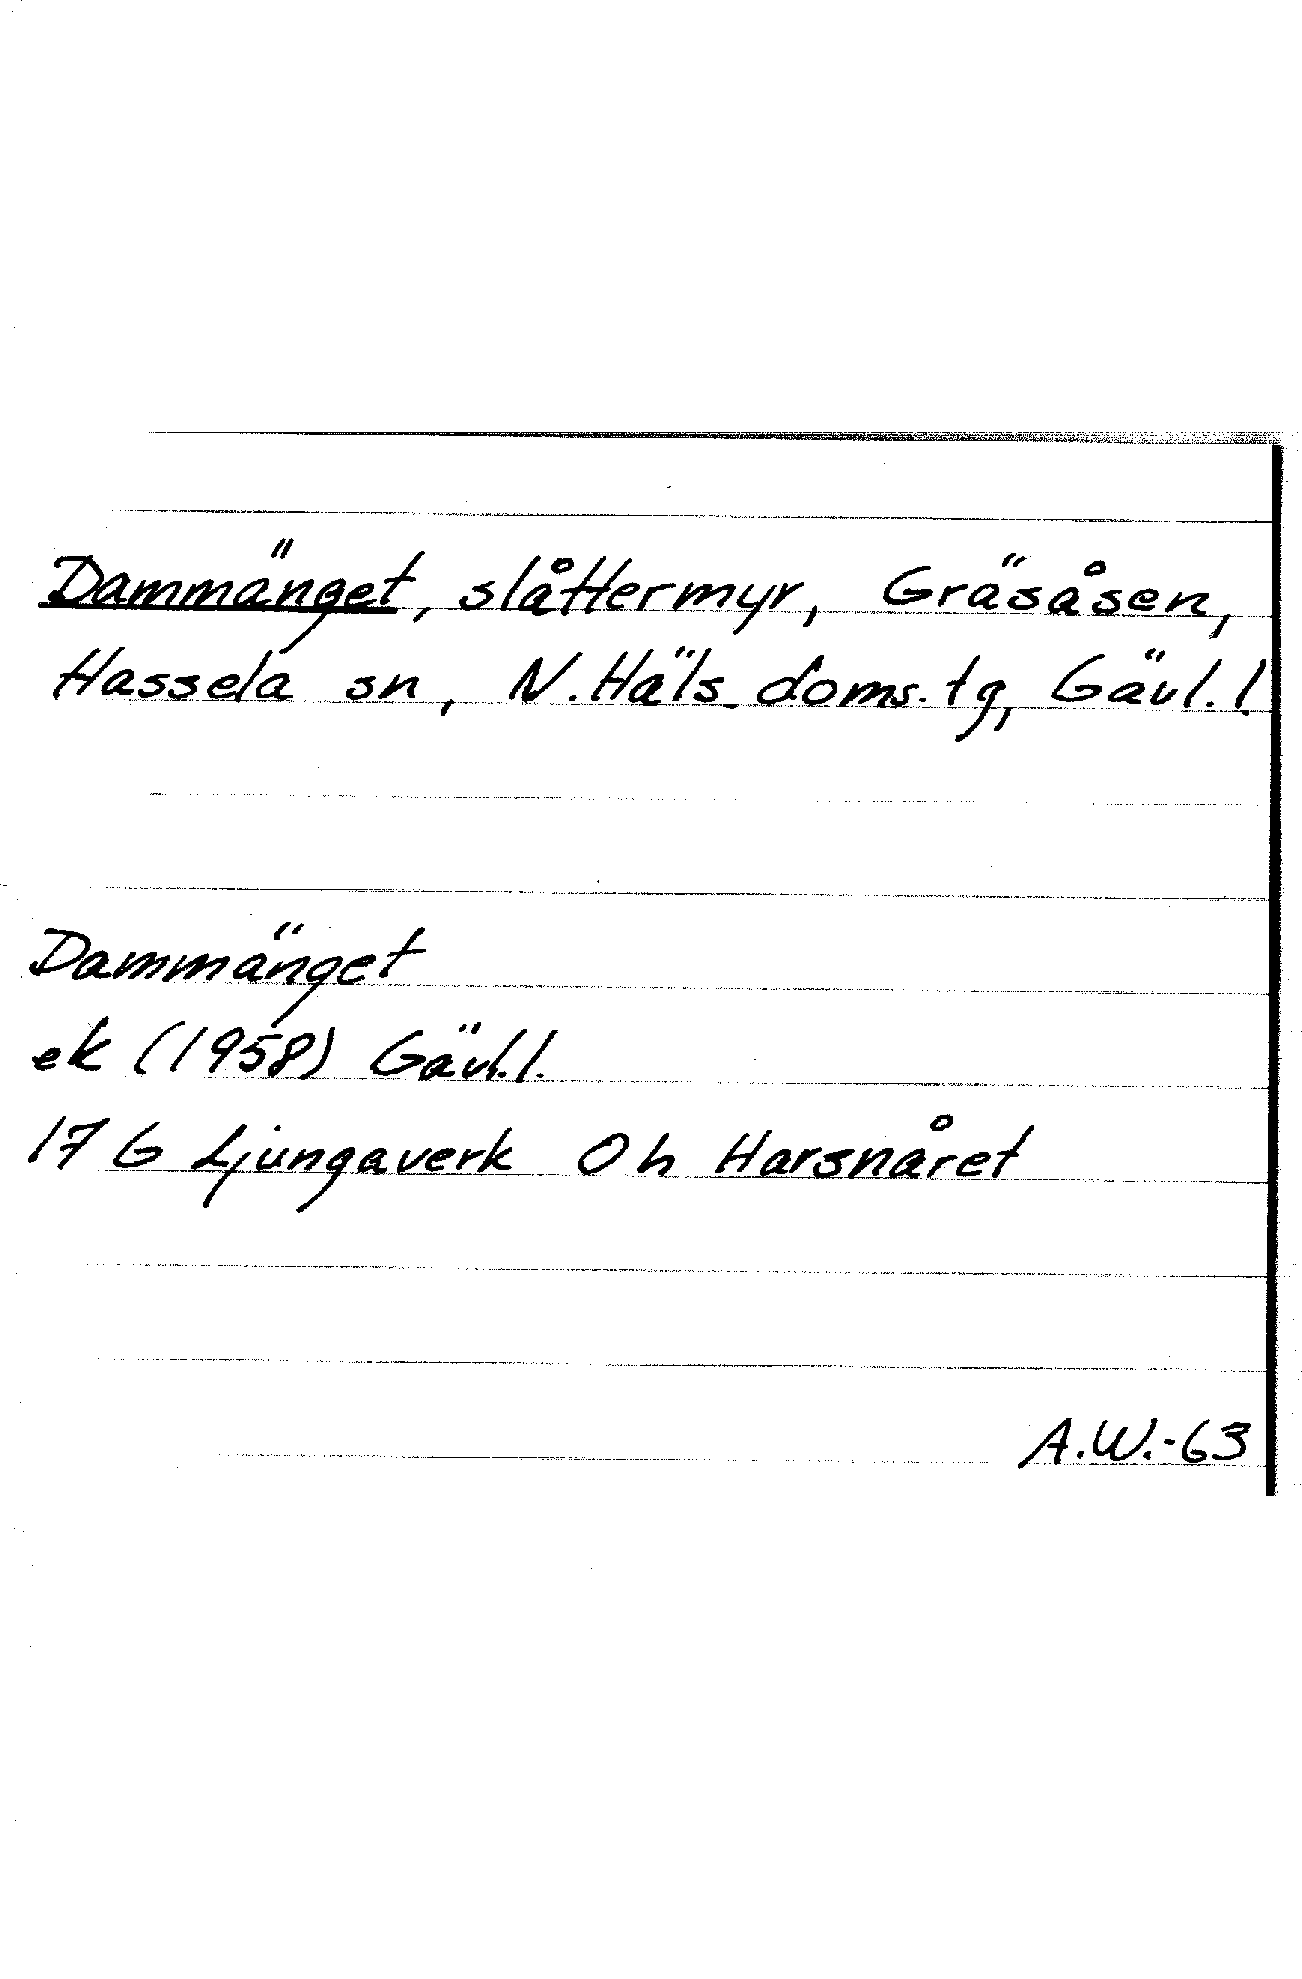 Dammänget, slåttermyr, Gräsåsen,
Hassela sn, N. Häls. doms. tg, Gävl. l.
Dammänget
ek (1958) Gävl. l.
17 G Ljungaverk 0 h Harsnåret
A.W.-63